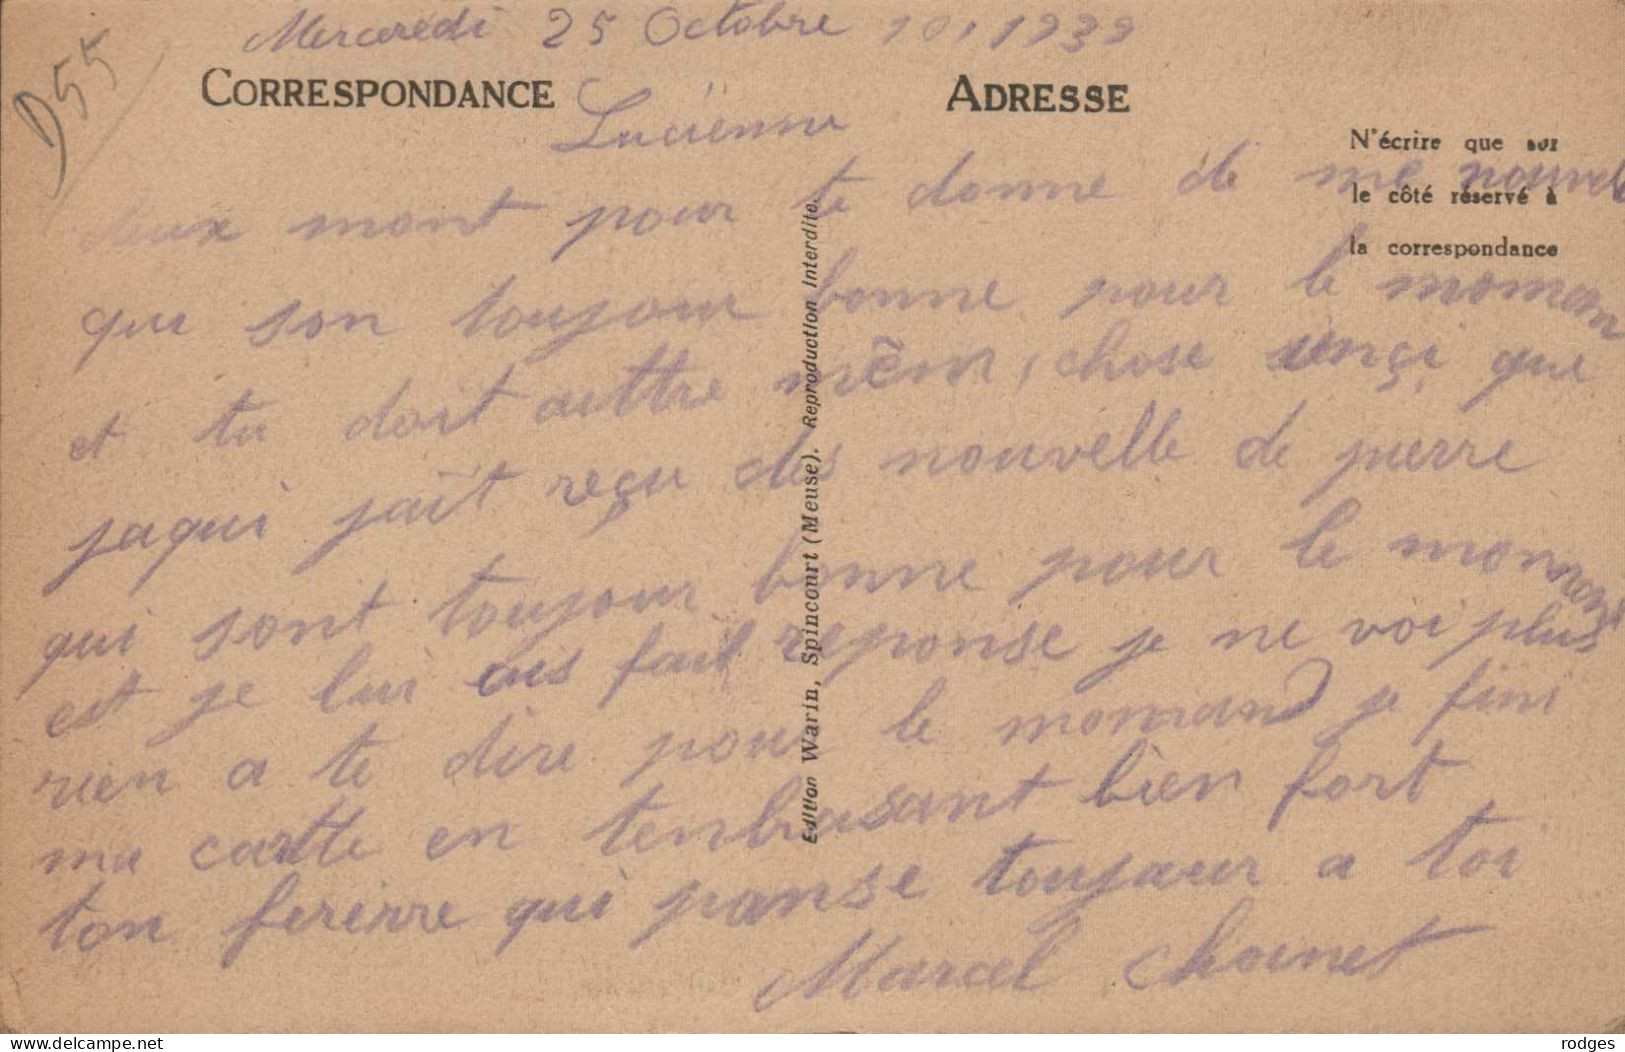 Mercredi 25 Octobre 10, 1939
D55
CORRESPONDANCE
ADRESSE
Lucienne
N'écrire que sur
le côté réservé à
la correspondance
deux mont pour te donne de me nouvel
que son toujour bonne pour le moman
et tu doit aittre mêm, chose unci que
jaqui jait reçu des nouvelle de pierre
qui sont toujour bonne pour le moman
est je lui ais fait reponse je ne voi plus
rien a te dire pour le momand je fini
ma cartte en tenbrasant bien fort
ton ferirre qui panse toujour a toi
Marcel Choinet
Edition Warin, Spincourt (Meuse). Reproduction Interdite.
rodges